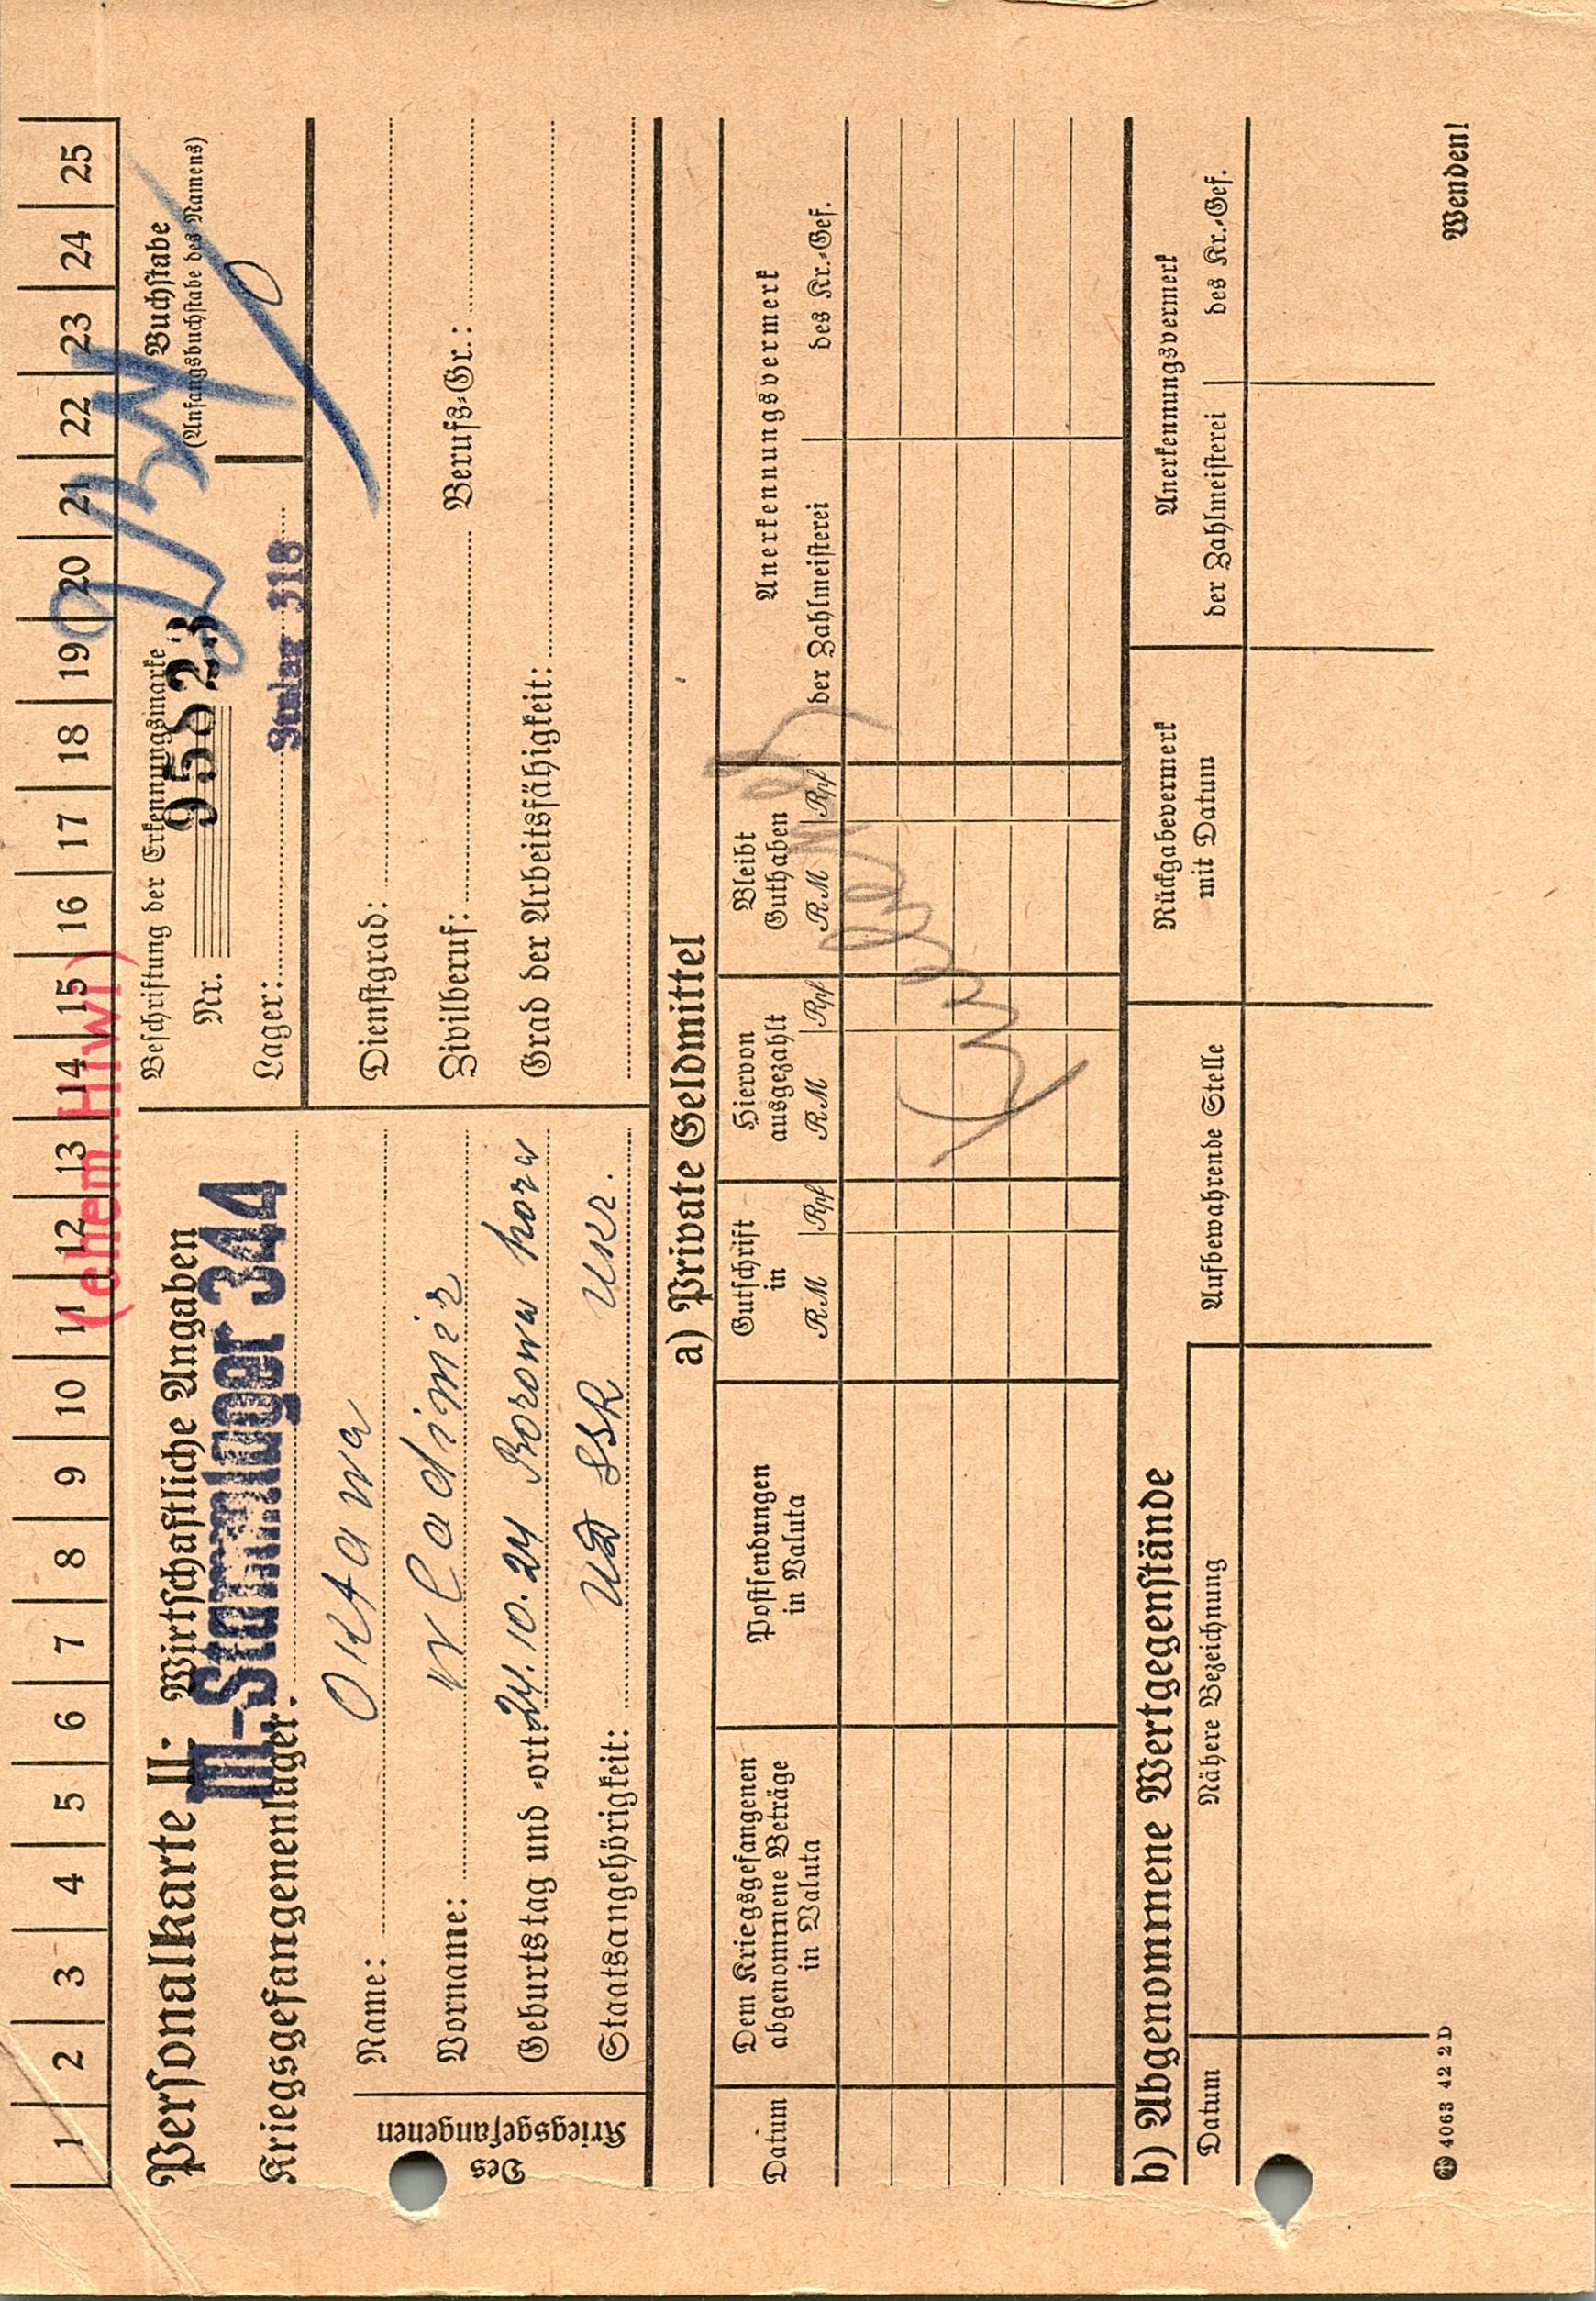 1 2 3 4 5 6 7 8 9 10 11 12 13 14 15 16 17 18 19 20 21 22 23 24 25
(ehem. Hiwi)
Personalkarte II: Wirtschaftliche Angaben
III.-Stammlager 344
Kriegsgefangenenlager:
Beschriftung der Erkennungsmarke
Nr. 95823
Lager: Stalag 318
Buchstabe
(Anfangsbuchstabe des Namens)
Des Kriegsgefangenen
Name: Oktawa
Vorname: Wladimir
Geburtstag und -ort: 24.10.24 Borowa hora
Staatsangehörigkeit: UdSSR Ukr.
Dienstgrad:
Zivilberuf: Berufs-Gr.:
Grad der Arbeitsfähigkeit:
a) Private Geldmittel
Datum
Dem Kriegsgefangenen abgenommene Beträge in Valuta
Postsendungen in Valuta
Gutschrift in RM Rpf
Hiervon ausgezahlt RM Rpf
Bleibt Guthaben RM Rpf
Anerkennungsvermerk
der Zahlmeisterei des Kr.-Gef.
b) Abgenommene Wertgegenstände
Datum
Nähere Bezeichnung
Aufbewahrende Stelle
Rückgabevermerk mit Datum
Anerkennungsvermerk
der Zahlmeisterei des Kr.-Gef.
4063 42 2D
Wenden!